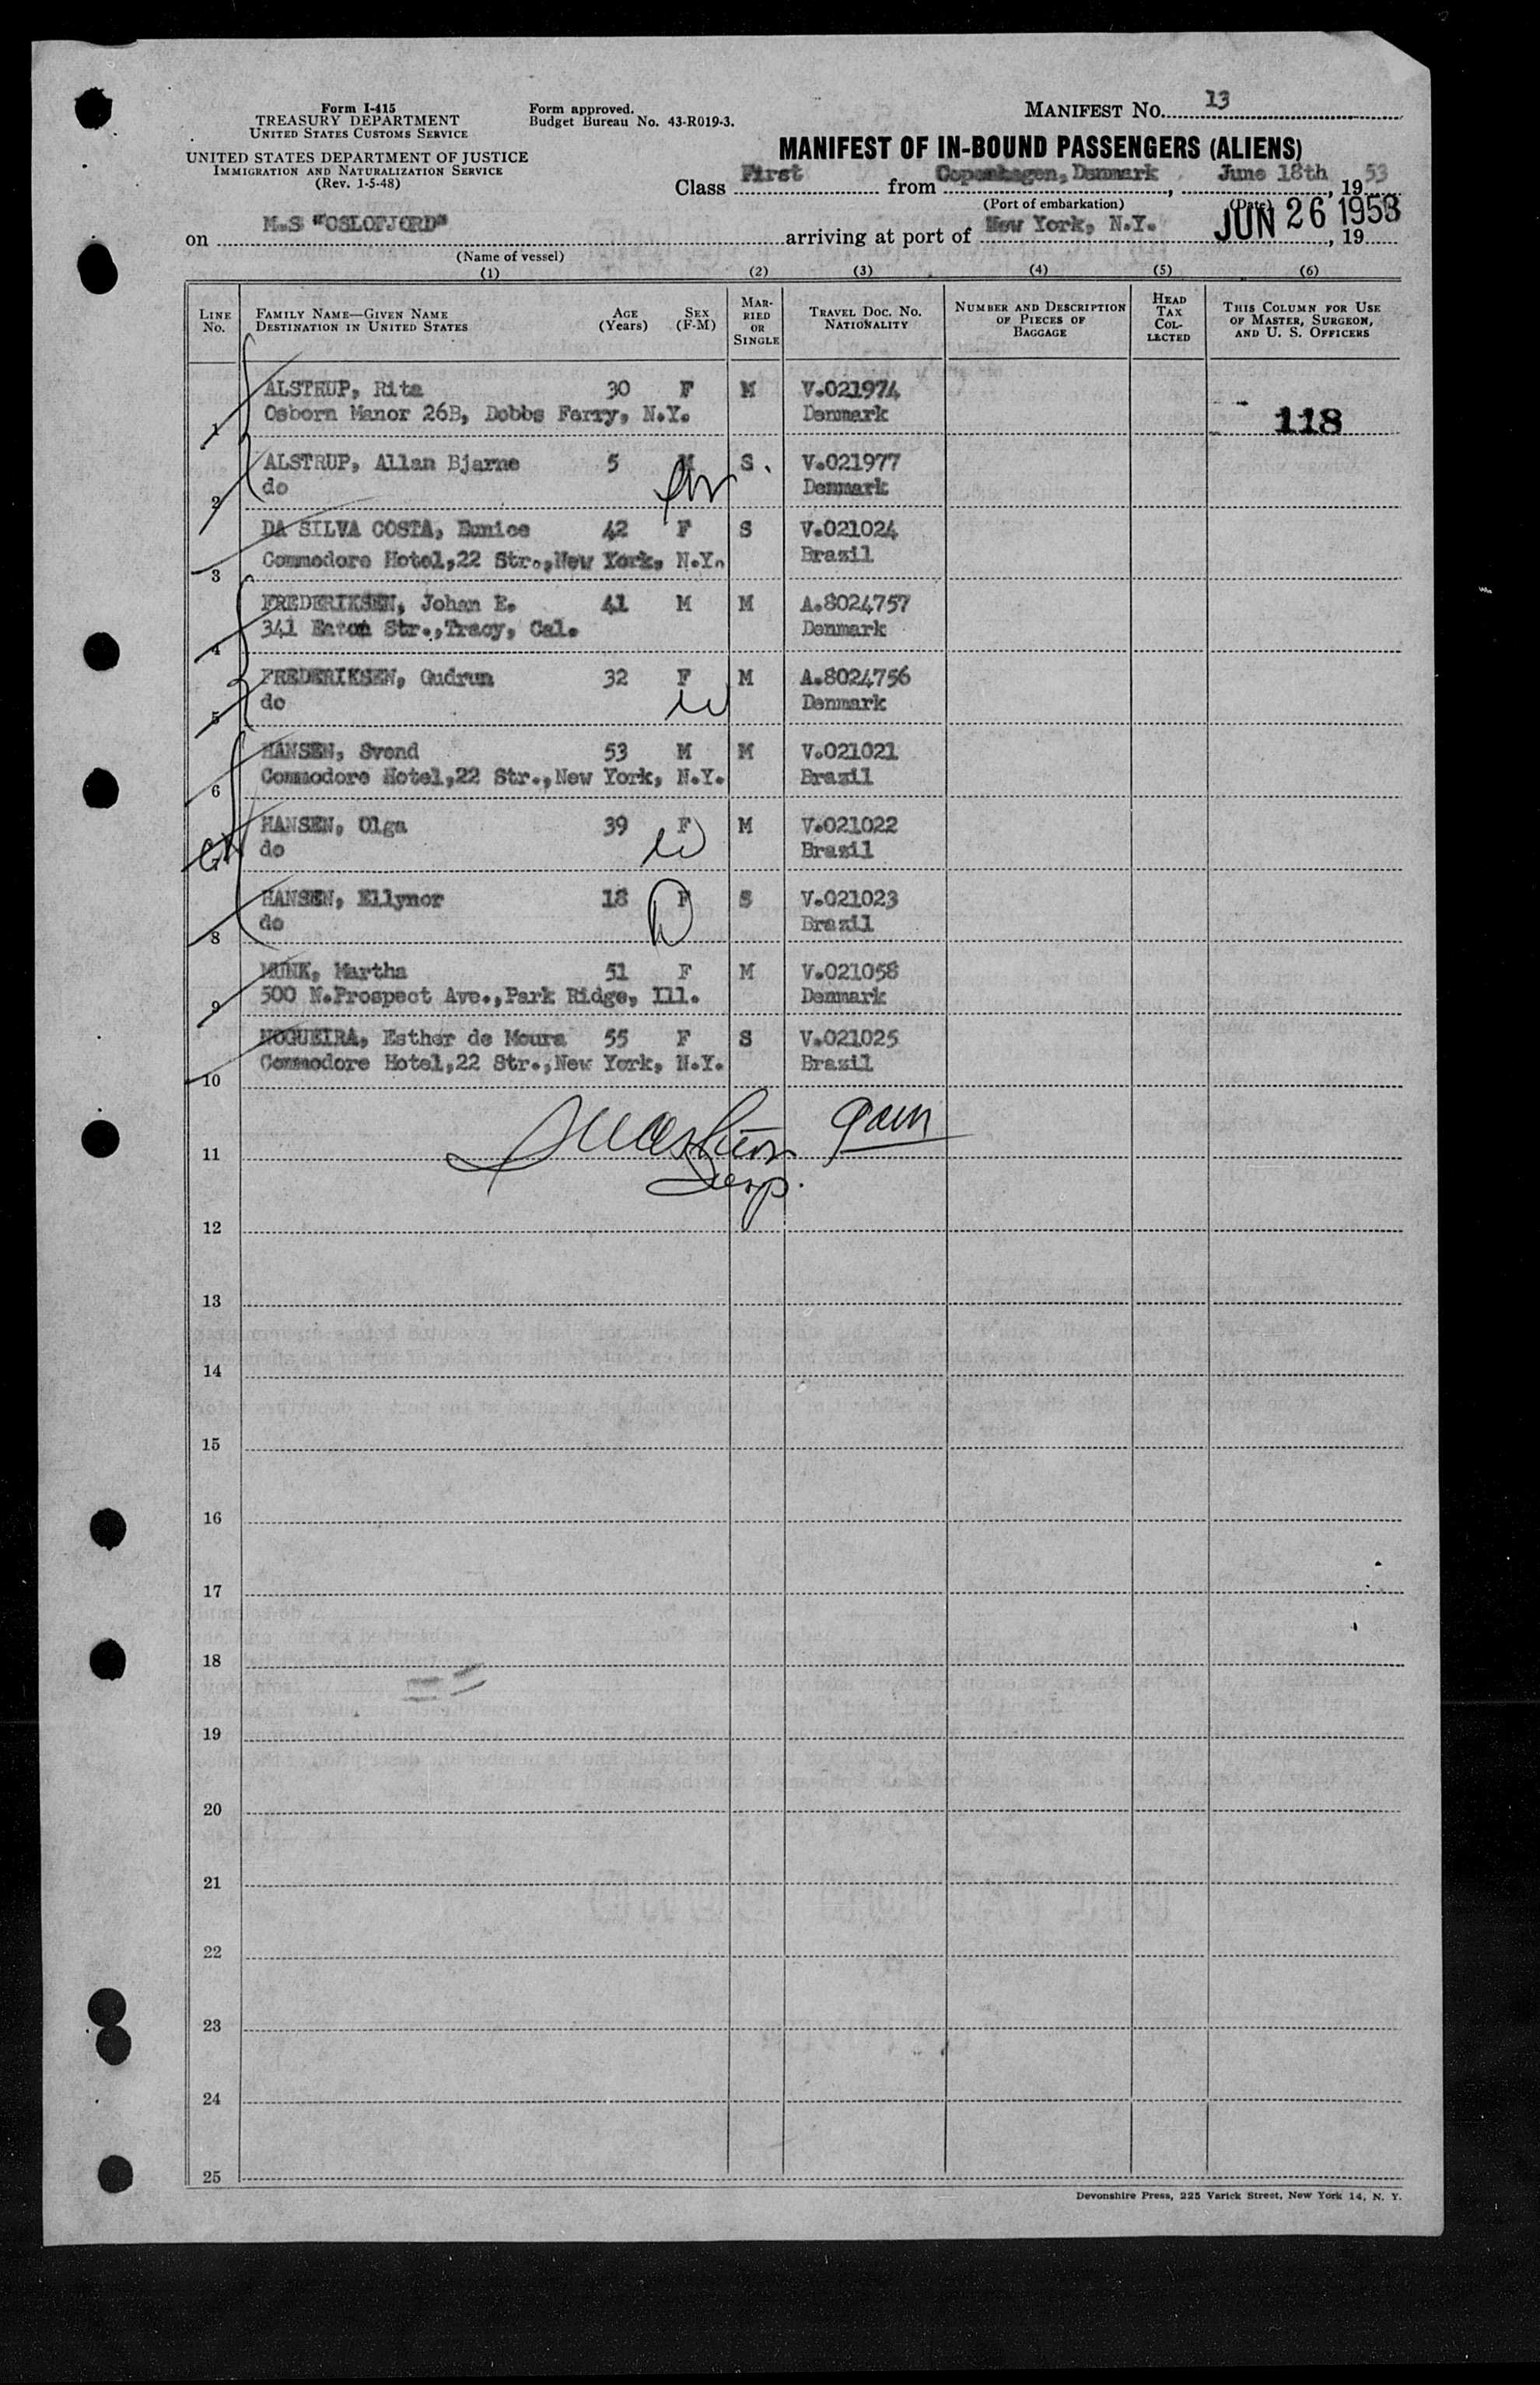 Form I-415
TREASURY DEPARTMENT
UNITED STATES CUSTOMS SERVICE
UNITED STATES DEPARTMENT OF JUSTICE
IMMIGRATION AND NATURALIZATION SERVICE
(Rev. 1-5-48)
Form approved.
Budget Bureau No. 43-R019-3.
MANIFEST No. 13
MANIFEST OF IN-BOUND PASSENGERS (ALIENS)
Class First from Copenhagen, Denmark, June 18th, 1953
(Port of embarkation) (Date)
on M.S "OSLOFJORD" arriving at port of New York, N.Y. JUN 26 1953, 19
(Name of vessel)
(1) (2) (3) (4) (5) (6)
LINE No. FAMILY NAME—GIVEN NAME DESTINATION IN UNITED STATES AGE (Years) SEX (F-M) MARRIED OR SINGLE TRAVEL DOC. NO. NATIONALITY NUMBER AND DESCRIPTION OF PIECES OF BAGGAGE HEAD TAX COLLECTED THIS COLUMN FOR USE OF MASTER, SURGEON, AND U. S. OFFICERS
ALSTRUP, Rita 30 F M V.021974
1 Osborn Manor 26B, Dobbs Farry, N.Y. Denmark 118
ALSTRUP, Allan Bjarne 5 M S. V.021977
2 do Denmark
DA SILVA COSTA, Eunice 42 F S V.021024
3 Commodore Hotel,22 Str.,New York, N.Y. Brazil
FREDERIKSEN, Johan E. 41 M M A.8024757
4 341 Eaton Str.,Tracy, Cal. Denmark
FREDERIKSEN, Gudrun 32 F M A.8024756
5 do Denmark
HANSEN, Svend 53 M M V.021021
6 Commodore Hotel,22 Str.,New York, N.Y. Brazil
HANSEN, Olga 39 F M V.021022
do Brazil
HANSEN, Ellynor 18 F S V.021023
8 do Brazil
MUNK, Martha 51 F M V.021058
9 500 N.Prospect Ave.,Park Ridge, Ill. Denmark
NOGUEIRA, Esther de Moura 55 F S V.021025
10 Commodore Hotel,22 Str.,New York, N.Y. Brazil
11
12
13
14
15
16
17
18
19
20
21
22
23
24
25
Devonshire Press, 225 Varick Street, New York 14, N. Y.